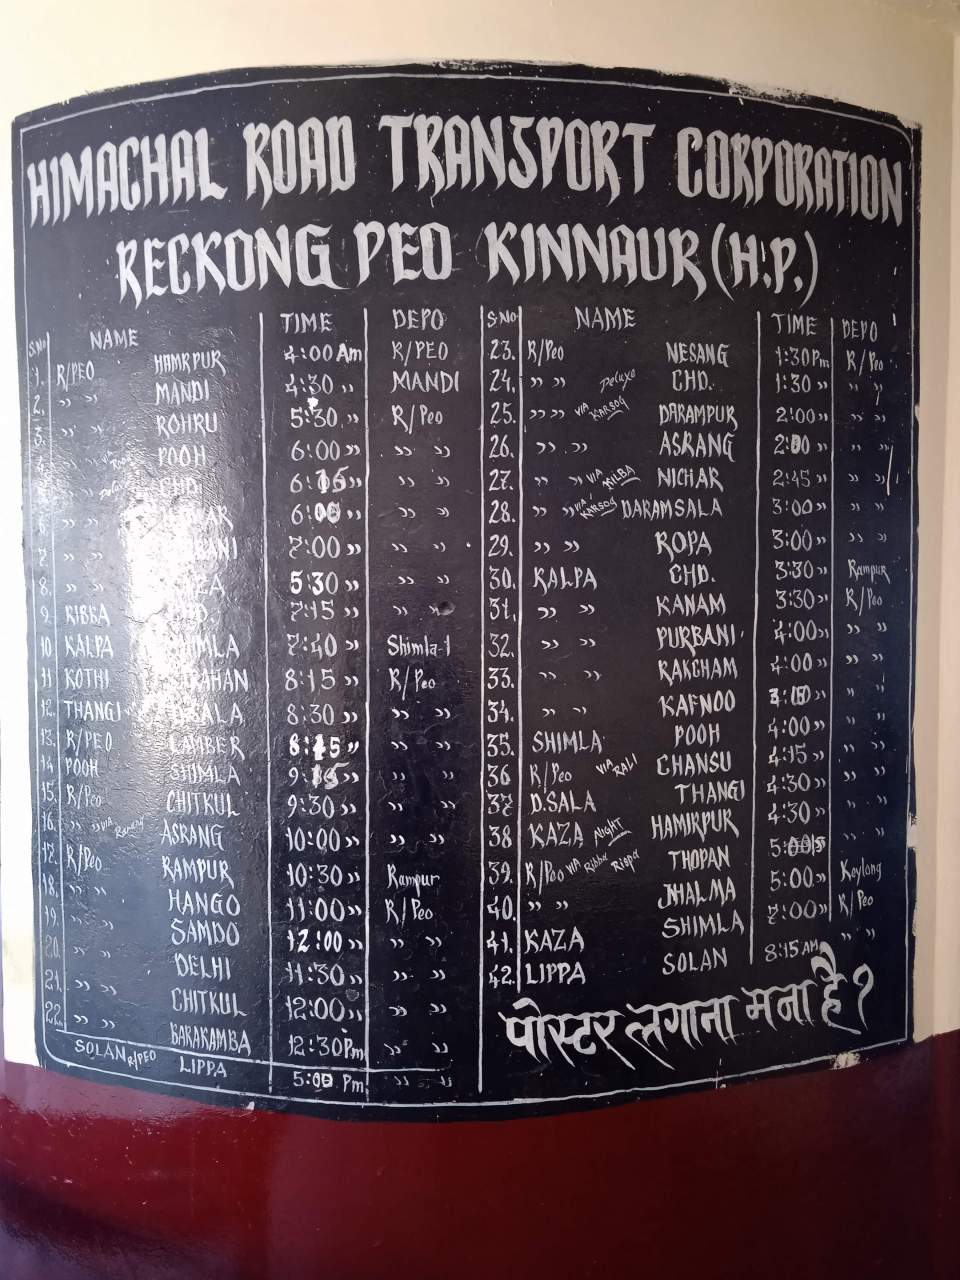 HIMACHAL ROAD TRANSPORT CORPORATION
RECKONG PEO KINNAUR (H.P.)
S.No NAME TIME DEPO
1. R/PEO HAMRPUR 4:00 Am R/PEO
2. " " MANDI 4:30 " MANDI
3. " " ROHRU 5:30 " R/Peo
" " POOH 6:00 " " "
" " CHD. 6:15 " " "
6. " " 6:00 " " "
7. " " 7:00 " " "
8. " " 5:30 " " "
9. RIBBA 7:15 " " "
10 KALPA 7:40 " Shimla-1
11 KOTHI 8:15 " R/Peo
12. THANGI 8:30 " " "
13. R/PEO LAMBER 8:15 " " "
14 POOH SHIMLA 9:15 " " "
15. R/Peo CHITKUL 9:30 " " "
16. " " VIA ASRANG 10:00 " " "
17. R/Peo RAMPUR 10:30 " Rampur
18. " " HANGO 11:00 " R/Peo
19. " " SAMDO 12:00 " " "
20. " " DELHI 11:30 " " "
21. " " CHITKUL 12:00 " " "
22. " " BARAKAMBA 12:30 Pm " "
SOLAN R/PEO LIPPA 5:00 Pm " "
S.No NAME TIME DEPO
23. R/Peo NESANG 1:30 Pm R/Peo
24. " " Deluxe CHD. 1:30 " " "
25. " " VIA KARSOG DARAMPUR 2:00 " " "
26. " " ASRANG 2:00 " "
27. " " VIA NILBA NICHAR 2:45 " " "
28. " " VIA KARSOG DARAMSALA 3:00 " " "
29. " " ROPA 3:00 " " "
30. KALPA CHD. 3:30 " Rampur
31. " " KANAM 3:30 " R/Peo
32. " " PURBANI 4:00 " " "
33. " " RAKCHAM 4:00 " " "
34. " " KAFNOO " " "
35. SHIMLA POOH 4:00 " " "
36 R/Peo VIA RALI CHANSU 4:15 " " "
37 D.SALA THANGI 4:30 " " "
38 KAZA NIGHT HAMIRPUR 4:30 " " "
39. R/Peo VIA Ribba Rispa THOPAN " "
40. " " JHALMA 5:00 " Keylong
41. KAZA SHIMLA 7:00 " R/Peo
42. LIPPA SOLAN 8:15 AM " "
पोस्टर लगाना मना है ?